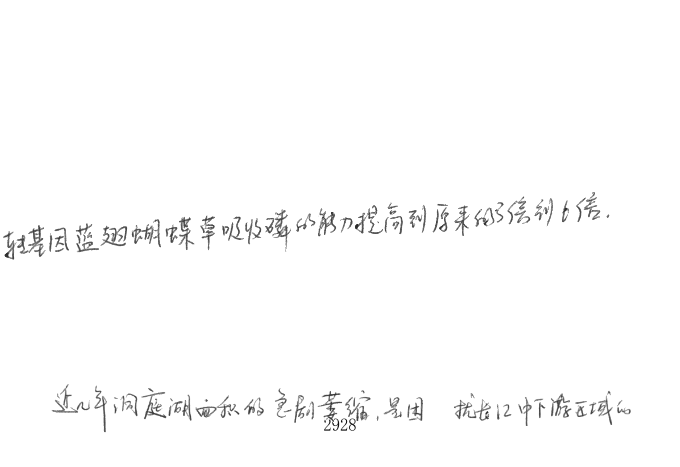 转基因蓝翅蝴蝶草吸收磷的能力提高到原来的3倍到6倍.
近几年洞庭湖面积的急剧萎缩,是困扰长江中下游区域的
2928